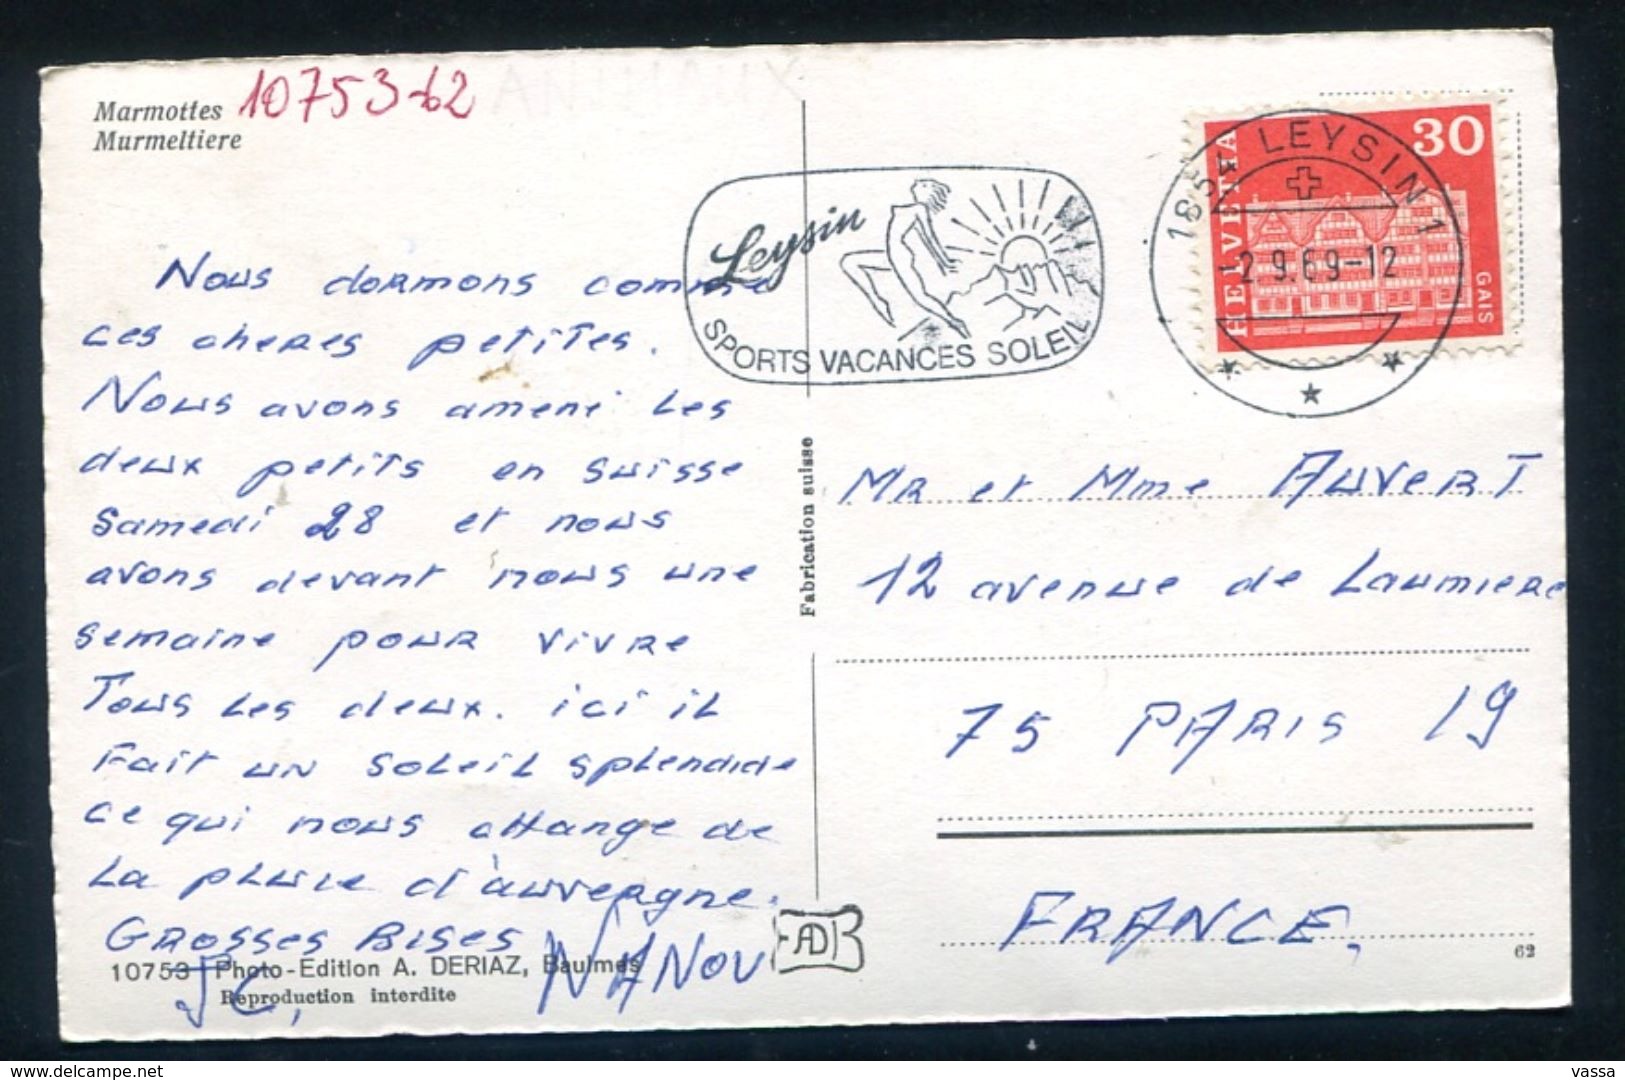 Marmottes
Murmeltiere
10753-62
Leysin
SPORTS VACANCES SOLEIL
1854 LEYSIN 1
-2.9.69-12
HELVETIA
30
GAIS
Nous dormons comme
ces cheres petites.
Nous avons amené les
deux petits en suisse
samedi 28 et nous
avons devant nous une
semaine pour vivre
Tous les deux. ici il
fait un soleil splendide
ce qui nous change de
la pluie d'auvergne.
Grosses Bises
JC, NANOU
Fabrication suisse
Mr et Mme AUVERT
12 avenue de Laumiere
75 PARIS 19
FRANCE.
10753 Photo-Edition A. DERIAZ, Baulmes
Reproduction interdite
AD
62
delcampe.net
vassa